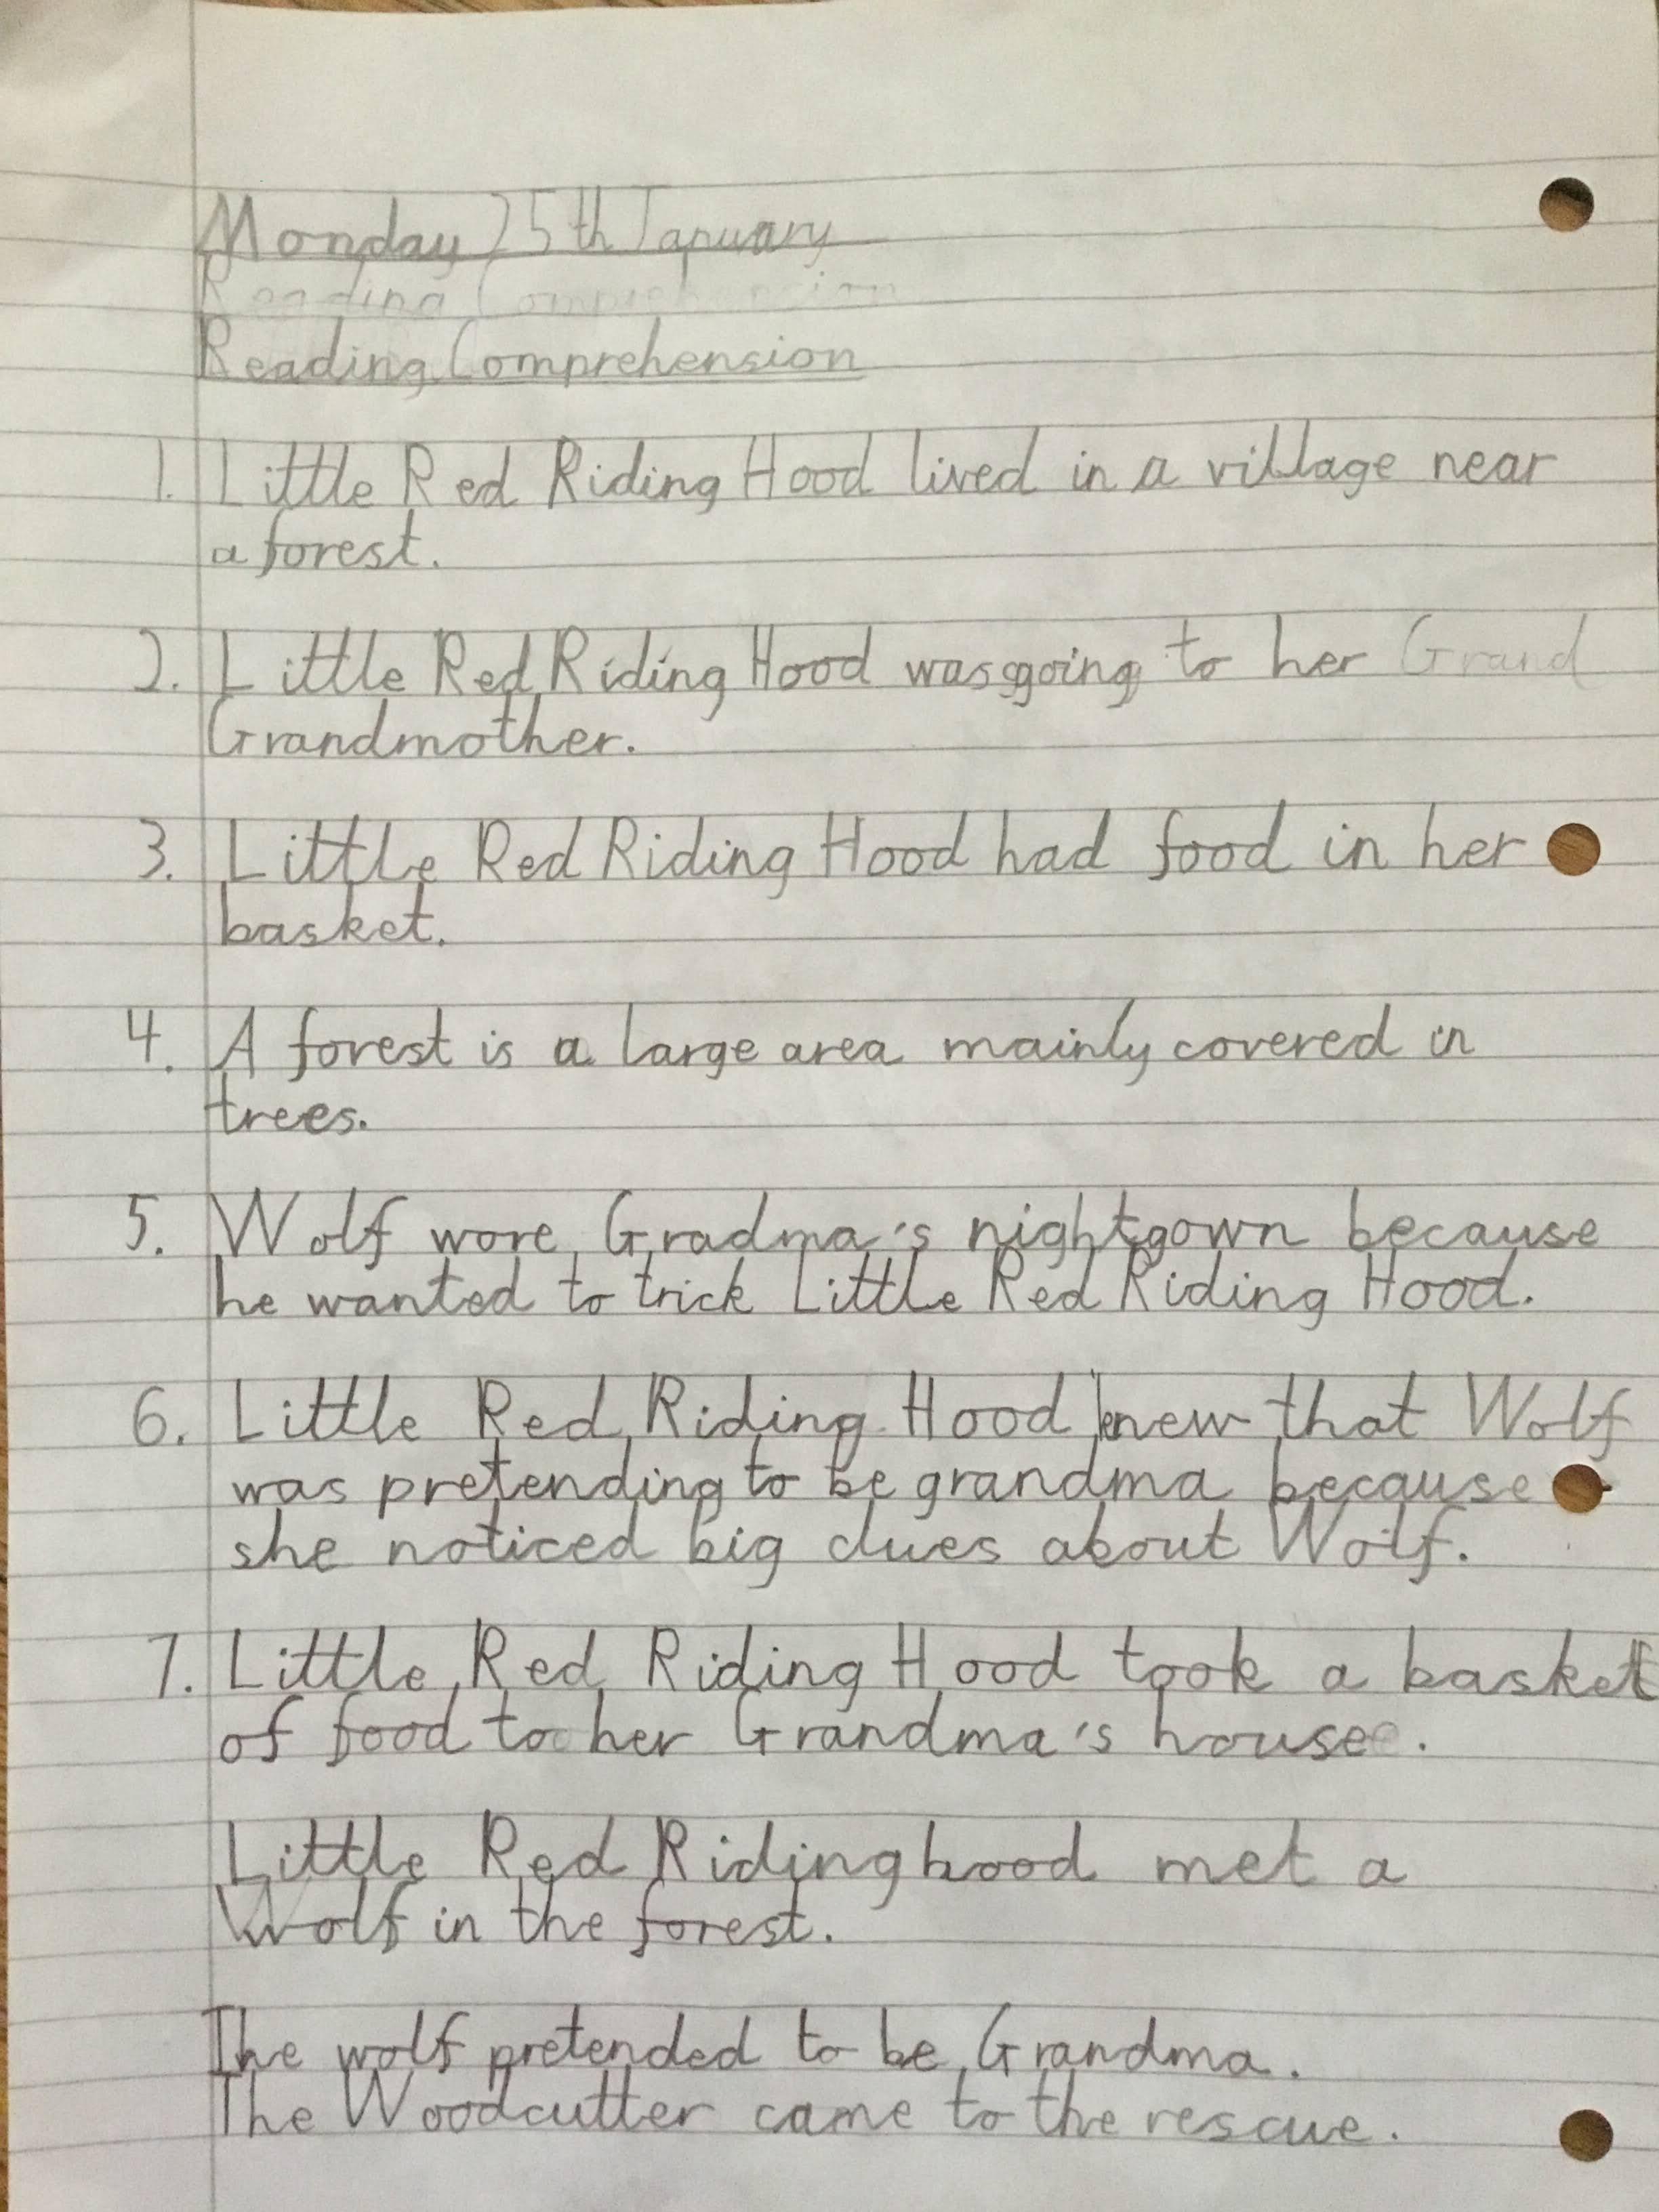 Monday 25th January
Reading Comprehension
Reading Comprehension
1. Little Red Riding Hood lived in a village near
a forest.
2. Little Red Riding Hood was going to her Grand
Grandmother.
3. Little Red Riding Hood had food in her
basket.
4. A forest is a large area mainly covered in
trees.
5. Wolf wore Gradma's nightgown because
he wanted to trick Little Red Riding Hood.
6. Little Red Riding Hood knew that Wolf
was pretending to be grandma because
she noticed big clues about Wolf.
7. Little Red Riding Hood took a basket
of food to her Grandma's house.
Little Red Riding hood met a
Wolf in the forest.
The wolf pretended to be Grandma.
The Woodcutter came to the rescue.